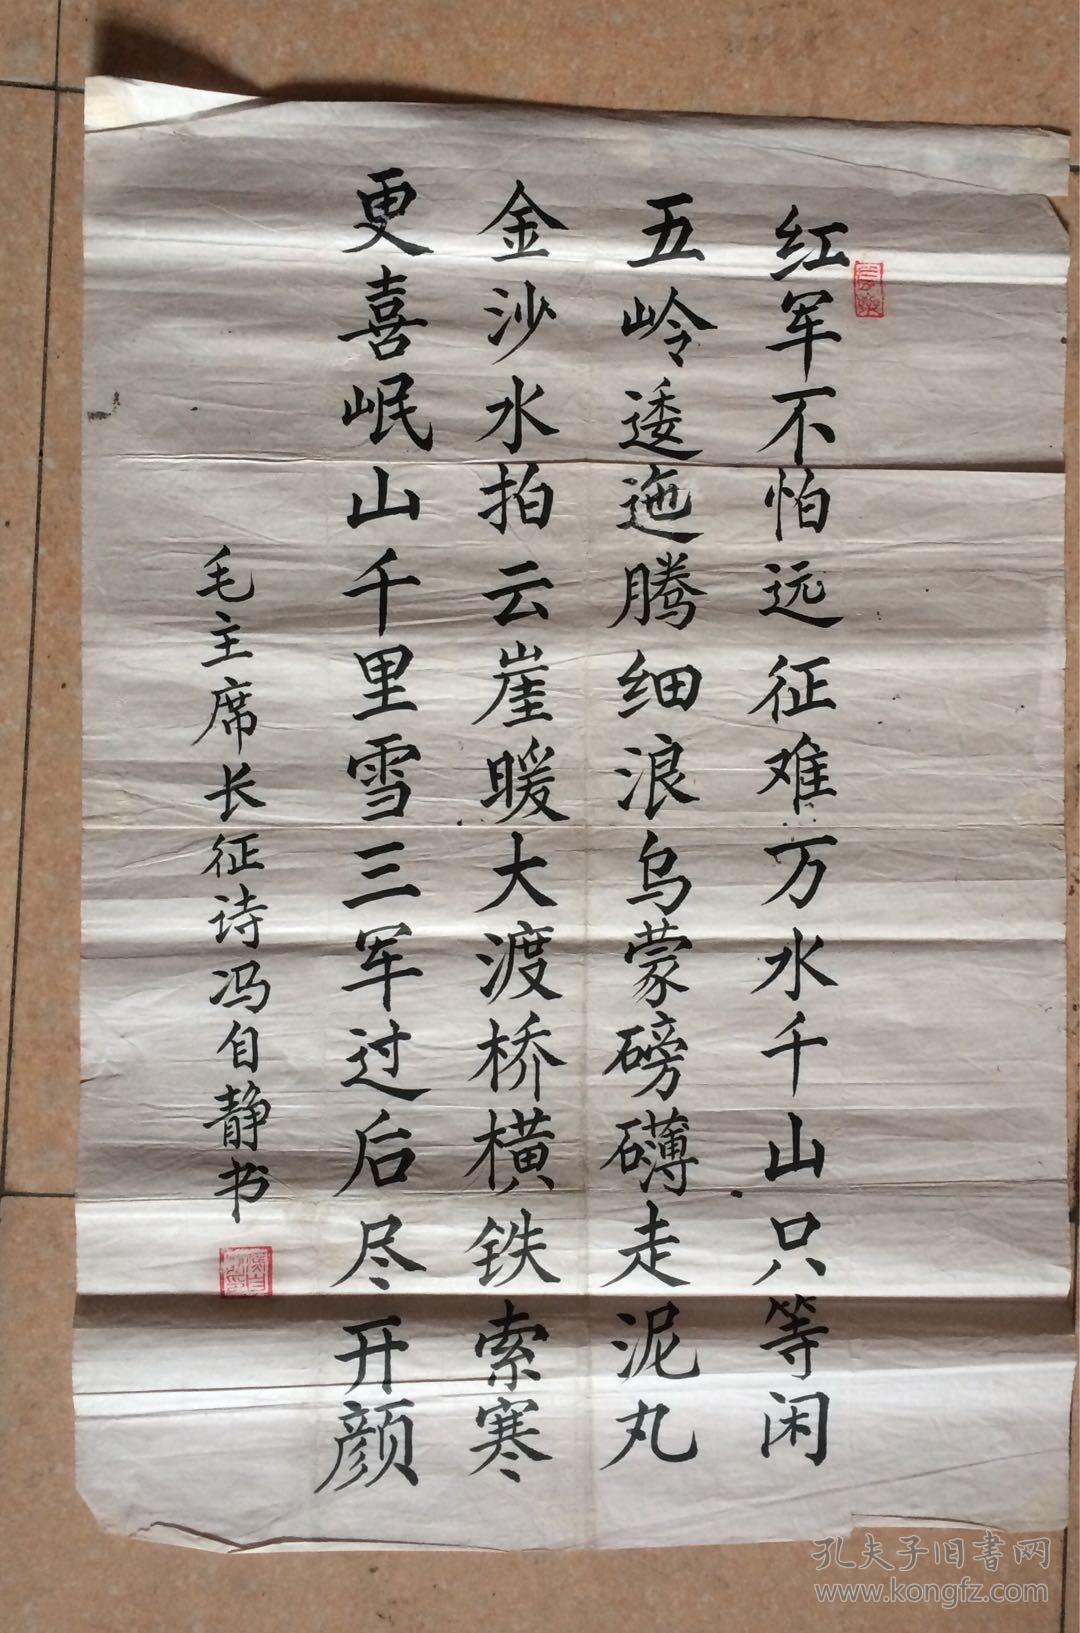 红军不怕远征难万水千山只等闲
五岭逶迤腾细浪乌蒙磅礴走泥丸
金沙水拍云崖暖大渡桥横铁索寒
更喜岷山千里雪三军过后尽开颜
毛主席长征诗冯自静书
孔夫子旧书网
www.kongfz.com